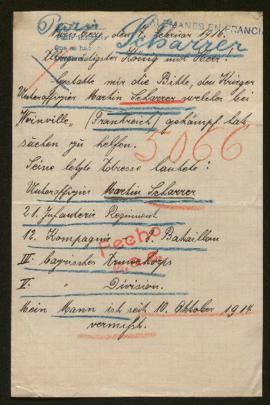 Paris
ALEMANES EN FRANCIA
Scharrer
den 7. Februar 1916.
König und Herr!
gestatte mir die Bitte, den Krieger
Unteroffizier Martin Scharrer welcher bei
(Frankreich) gekämpft hat,
suchen zu helfen.
Seine letzte Adresse lautete:
Unteroffizier Martin Scharrer
3066
21. Infanterie Regiment
12. Kompagnie 3. Bataillon
Hecho
III. bayrisches Armeekorps
V. " Division.
Mein Mann ist seit 10. Oktober 1914
vermißt.